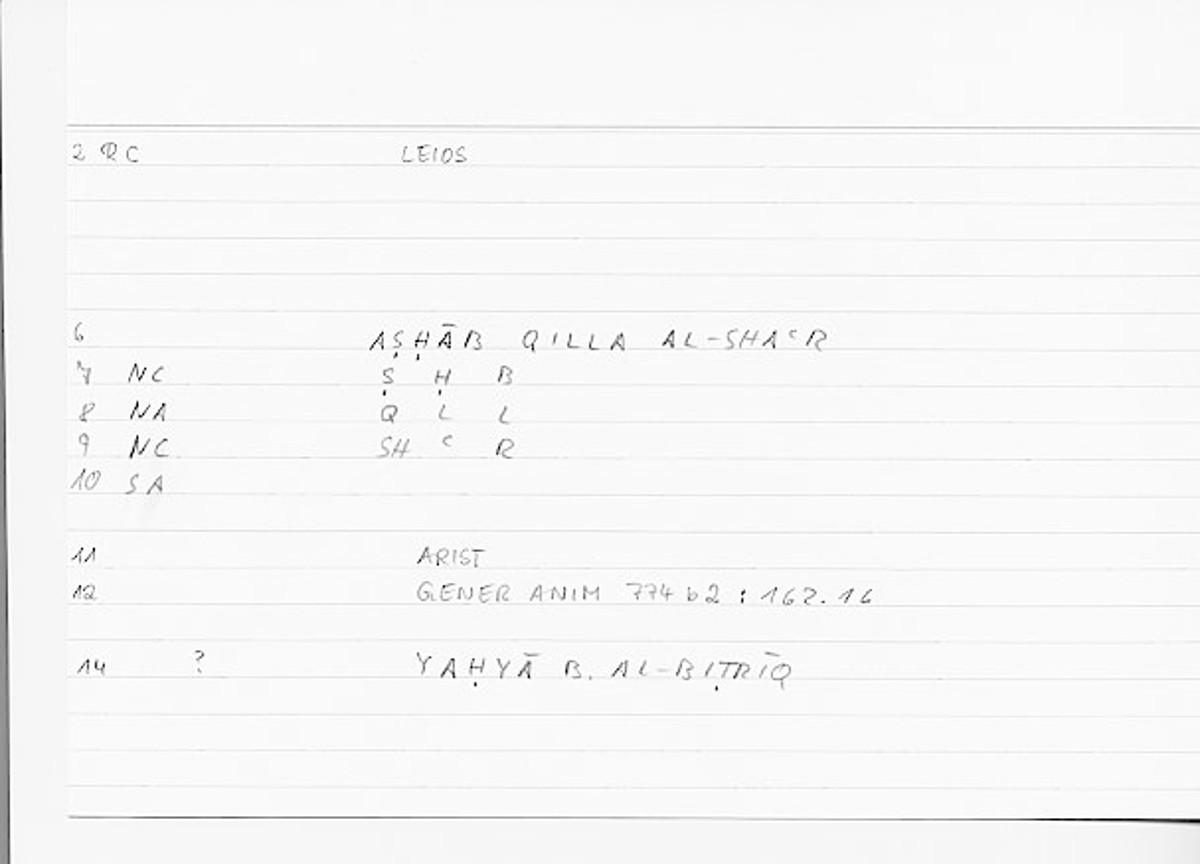 2 RC LEIOS
6 AṢḤĀB QILLA AL-SHAᶜR
7 NC Ṣ Ḥ B
8 NA Q L L
9 NC SH ᶜ R
10 SA
11 ARIST
12 GENER ANIM 774 b2 : 162.16
14 ? YAḤYĀ B. AL-BIṬRĪQ